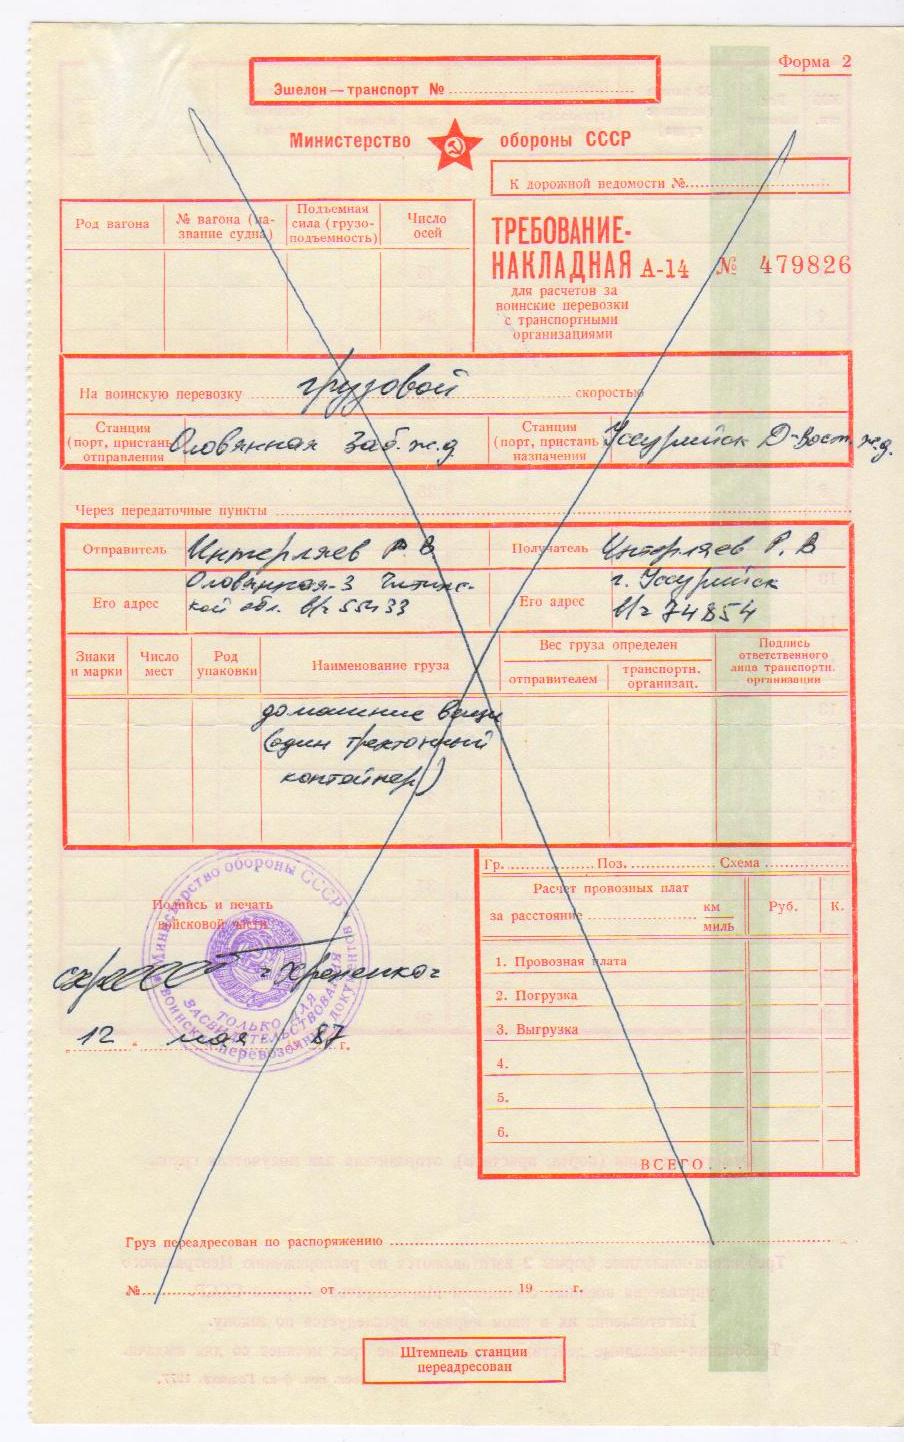 Форма 2
Эшелон — транспорт №
Министерство обороны СССР
К дорожной ведомости №
Род вагона
№ вагона (на-
звание судна)
Подъемная
сила (грузо-
подъемность)
Число
осей
ТРЕБОВАНИЕ-
НАКЛАДНАЯ А-14 № 479826
для расчетов за
воинские перевозки
с транспортными
организациями
На воинскую перевозку грузовой скоростью
Станция
(порт, пристань
отправления
Оловянная Заб. ж.д
Станция
(порт, пристань
назначения
Уссурийск Д-Вост. ж.д.
Через передаточные пункты
Отправитель
Интерляев Р. В
Получатель
Интерляев Р. В
Его адрес
Оловянная-3 Читинс-
кой обл. в/ч 55433
Его адрес
г. Уссурийск
в/ч 74854
Знаки
и марки
Число
мест
Род
упаковки
Наименование груза
Вес груза определен
отправителем
транспортн.
организац.
Подпись
ответственного
лица транспортн.
организации
домашние вещи
(один трехтонный
контейнер)
Гр. Поз. Схема
Расчет провозных плат
за расстояние
км
миль
Руб.
К.
1. Провозная плата
2. Погрузка
3. Выгрузка
4.
5.
6.
ВСЕГО . . .
Подпись и печать
войсковой части
Министерство обороны СССР
ТОЛЬКО ДЛЯ
ЗАСВИДЕТЕЛЬСТВОВАНИЯ
воинских перевозочных документов
12 " мая 87 г.
Груз переадресован по распоряжению
№ от 19 г.
Штемпель станции
переадресован